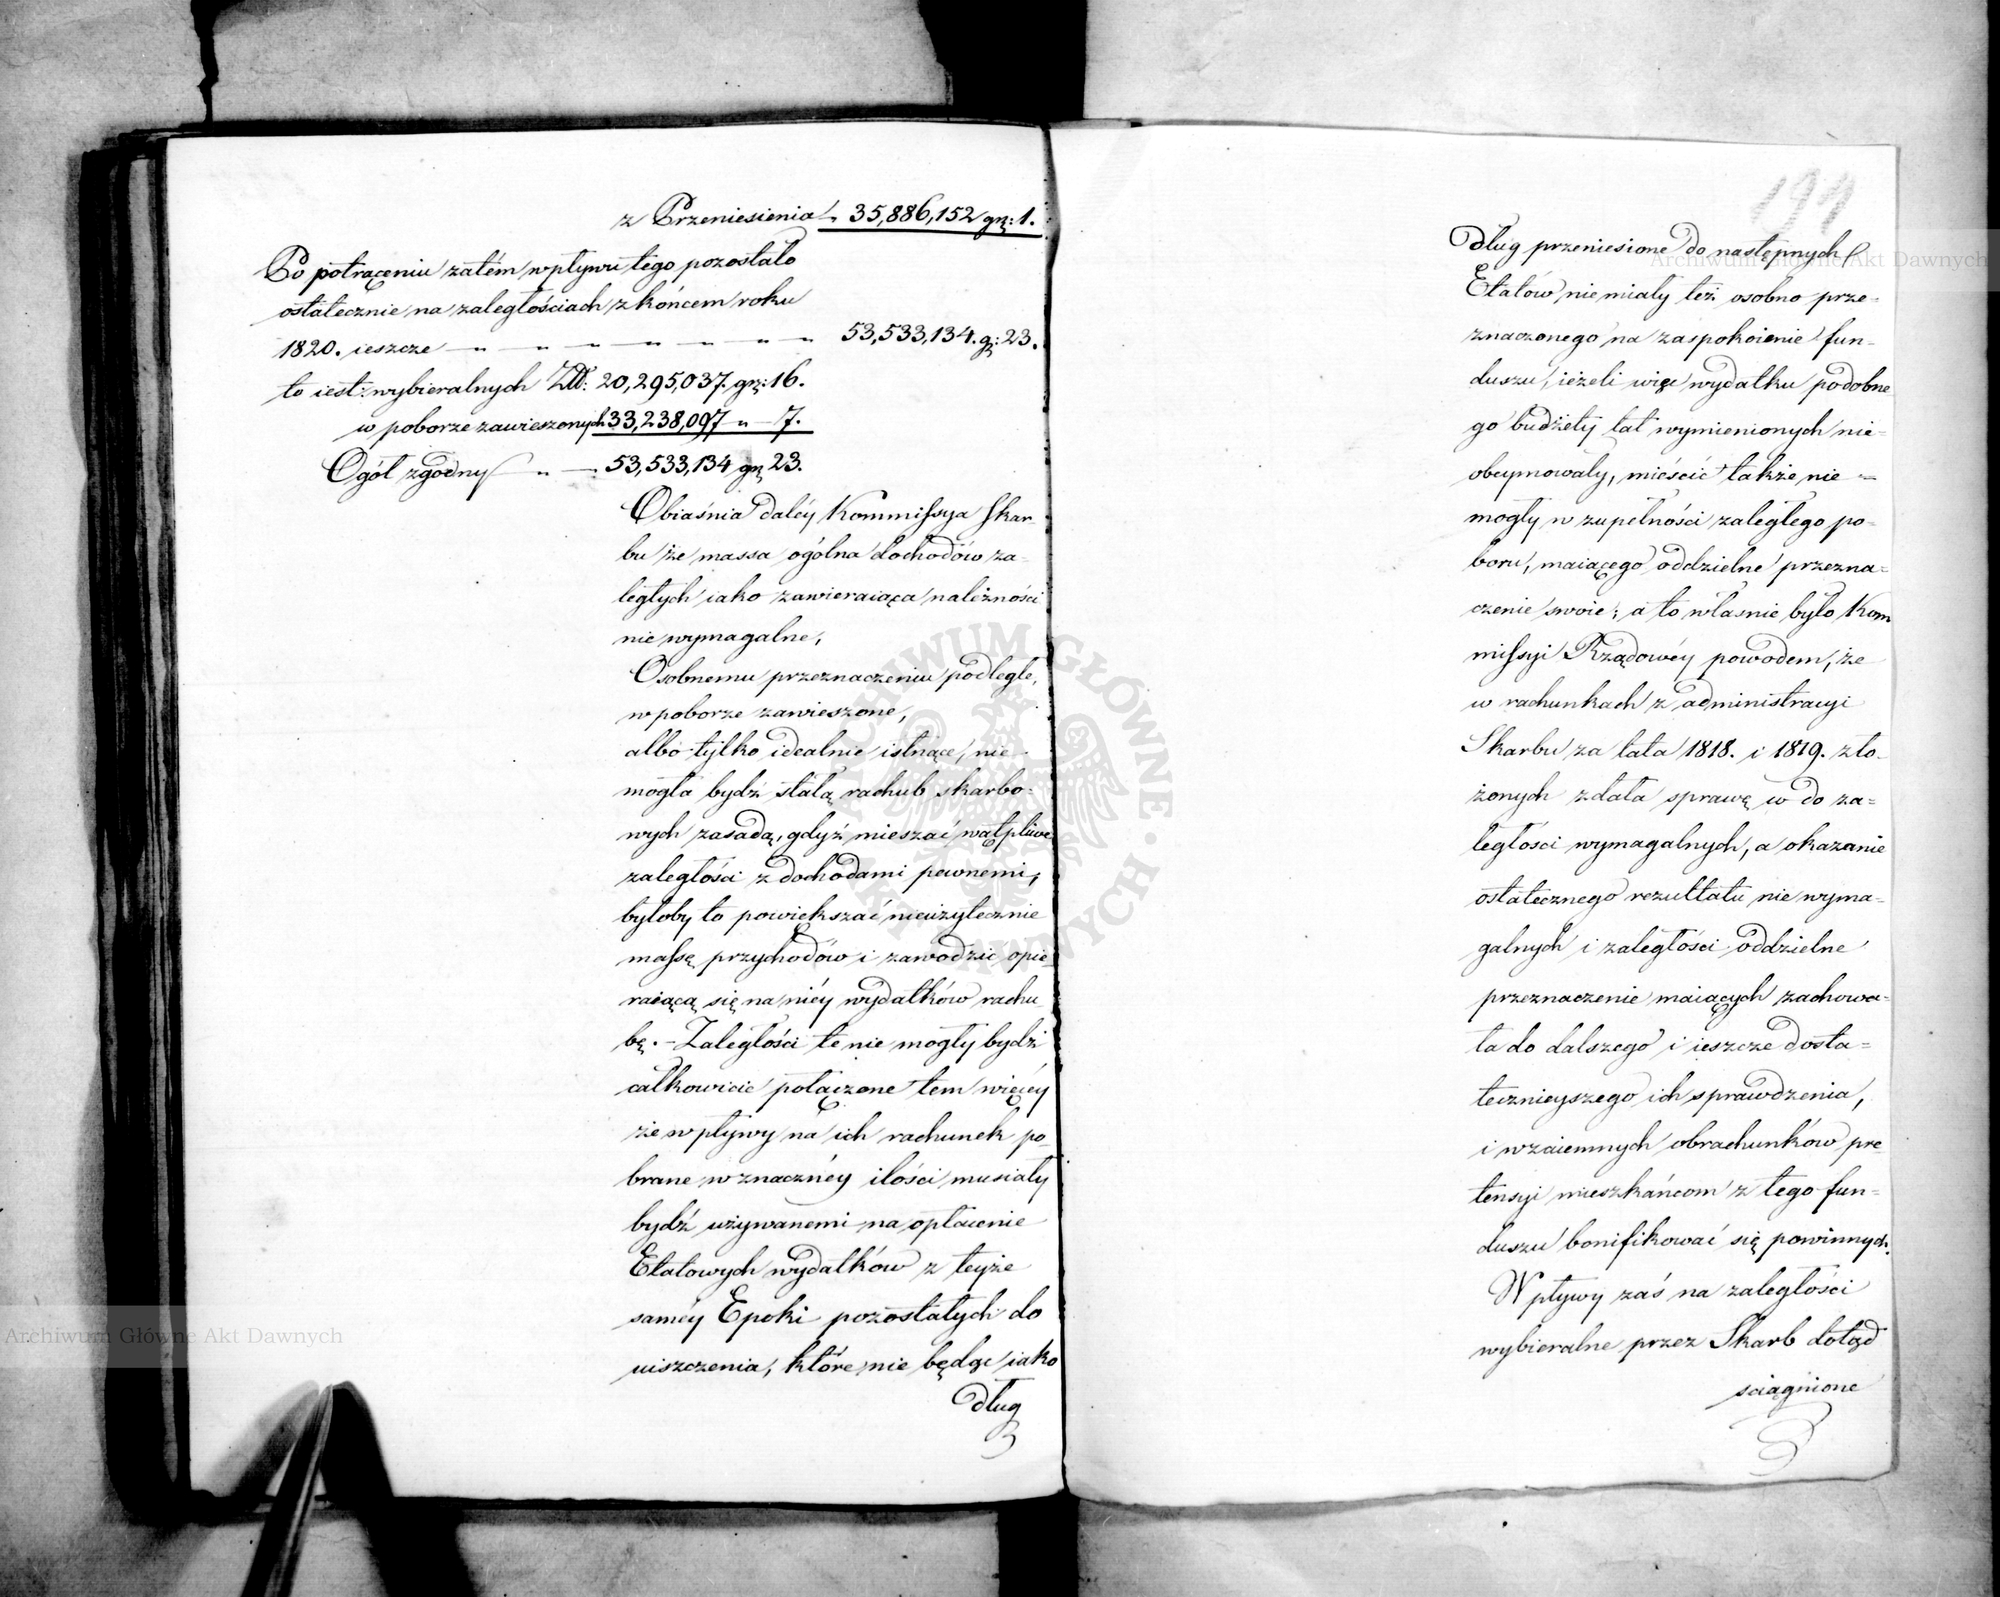 z Przeniesienia 35,886,152 gr: 1.
Po potrąceniu zatém wpływu tego pozostało
ostatecznie na zaległościach z końcem roku
1820. ieszcze — „ — „ — „ — „ — „ „ 53,533,134. g: 23.
to iest: wybieralnych Złł: 20,295,037. gr: 16.
w poborze zawieszonych 33,238,097 „ — 7.
Ogół zgodny — „ — 53,533,134 gr 23.
Obiaśnia daléy Kommissya Skar-
bu że massa ogólna dochodów za-
ległych iako zawieraiąca należności
nie wymagalne,
Osobnemu przeznaczeniu podległe,
w poborze zawieszone,
albo tylko idealnie istniące, nie
mogła bydź stałą rachub skarbo-
wych zasadą, gdyż mieszać wątpliwe
zaległości z dochodami pewnemi,
byłoby to powiększać nieużytecznie
massę przychodów i zawodzić opie-
raiącą się na niéy wydatków rachu
bę. – Zaległości te nie mogły bydź
całkowicie połączone tem więcéy
że wpływy na ich rachunek po-
brane w znacznéy ilości musiały
bydź używanemi na opłacenie
Etatowych wydatków z teyże
saméy Epoki pozostałych do
uiszczenia, które nie będąc iako
dług
191
Dług przeniesione do następnych
Etatów nie miały też osobno prze-
znaczonego na zaspokoienie fun-
duszu, ieżeli więc wydatku podobne
go budżety lat wymienionych nie-
obeymowały, mieścić także nie =
mogły w zupełności zaległego po-
boru, maiącego oddzielne przezna=
czenie swoie; a to własnie było Kom
missyi Rządowéy powodem, że
w rachunkach z administracyi
Skarbu za lata 1818. i 1819. zło-
żonych zdała sprawę w do za=
ległości wymagalnych, a okazanie
ostatecznego rezultatu nie wyma-
galnych i zaległości oddzielne
przeznaczenie maiących zachowa=
ła do dalszego i ieszcze dosta=
tecznieyszego ich sprawdzenia,
i wzaiemnych obrachunków pre-
tensyi mieszkańcom z tego fun=
duszu bonifikować się powinnych.
Wpływy zaś na zaległości
wybieralne przez Skarb dotąd
sciągnione
Archiwum Główne Akt Dawnych
Archiwum Główne Akt Dawnych
ARCHIWUM GŁÓWNE AKT DAWNYCH